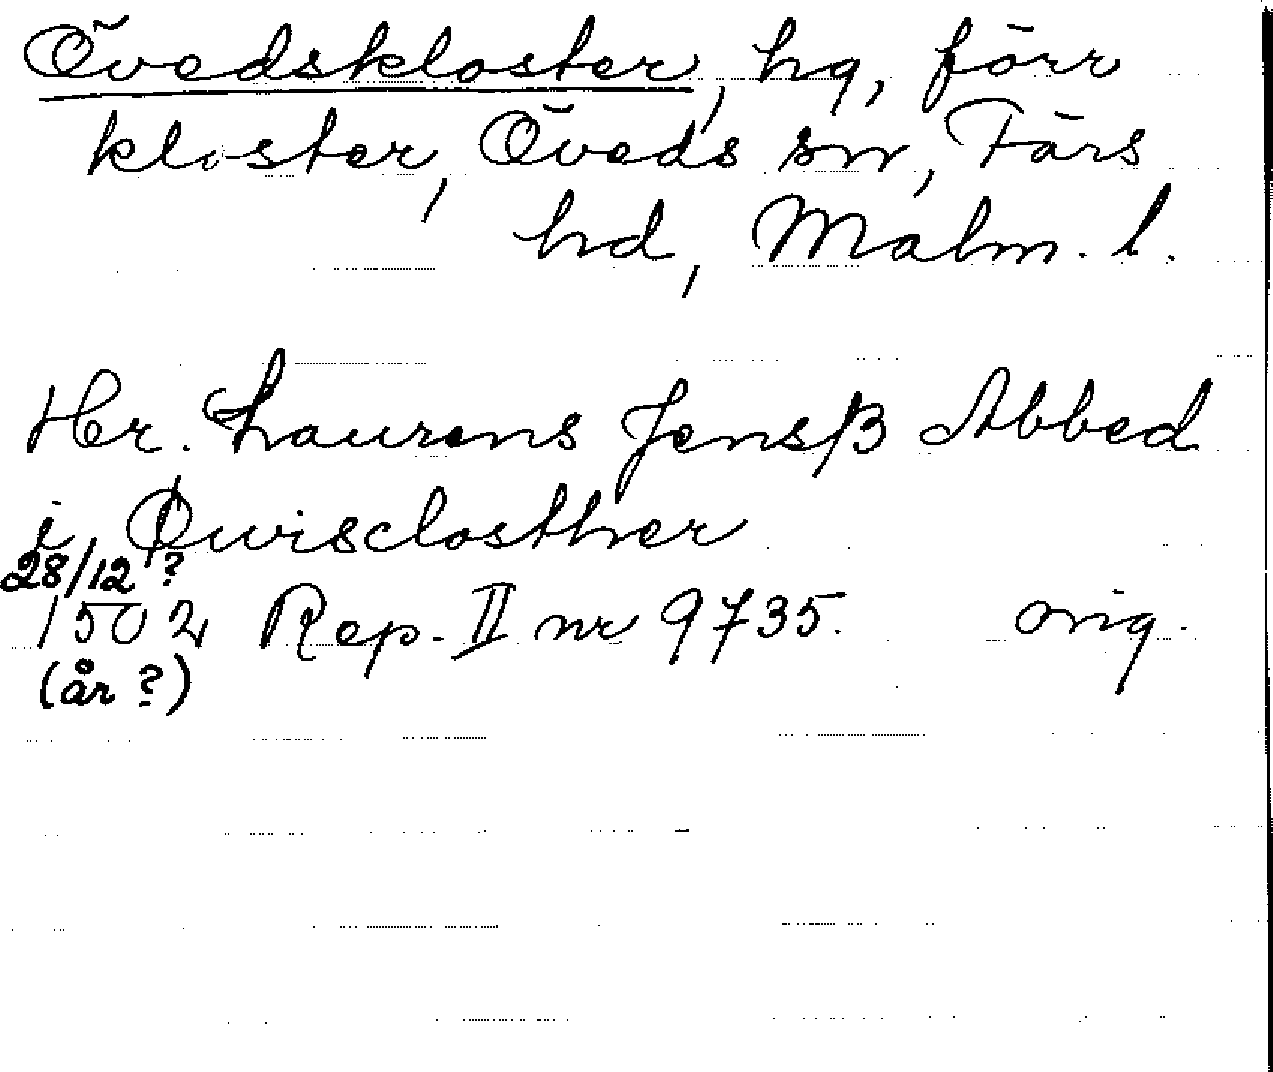 Övedskloster, hg, förr
kloster, Öveds sn, Färs
hd, Malm. l.
Her. Laurens Jensß Abbed
i Øwisclosther
28/12 ?
1502 Rep. II nr 9735. orig.
(år ?)